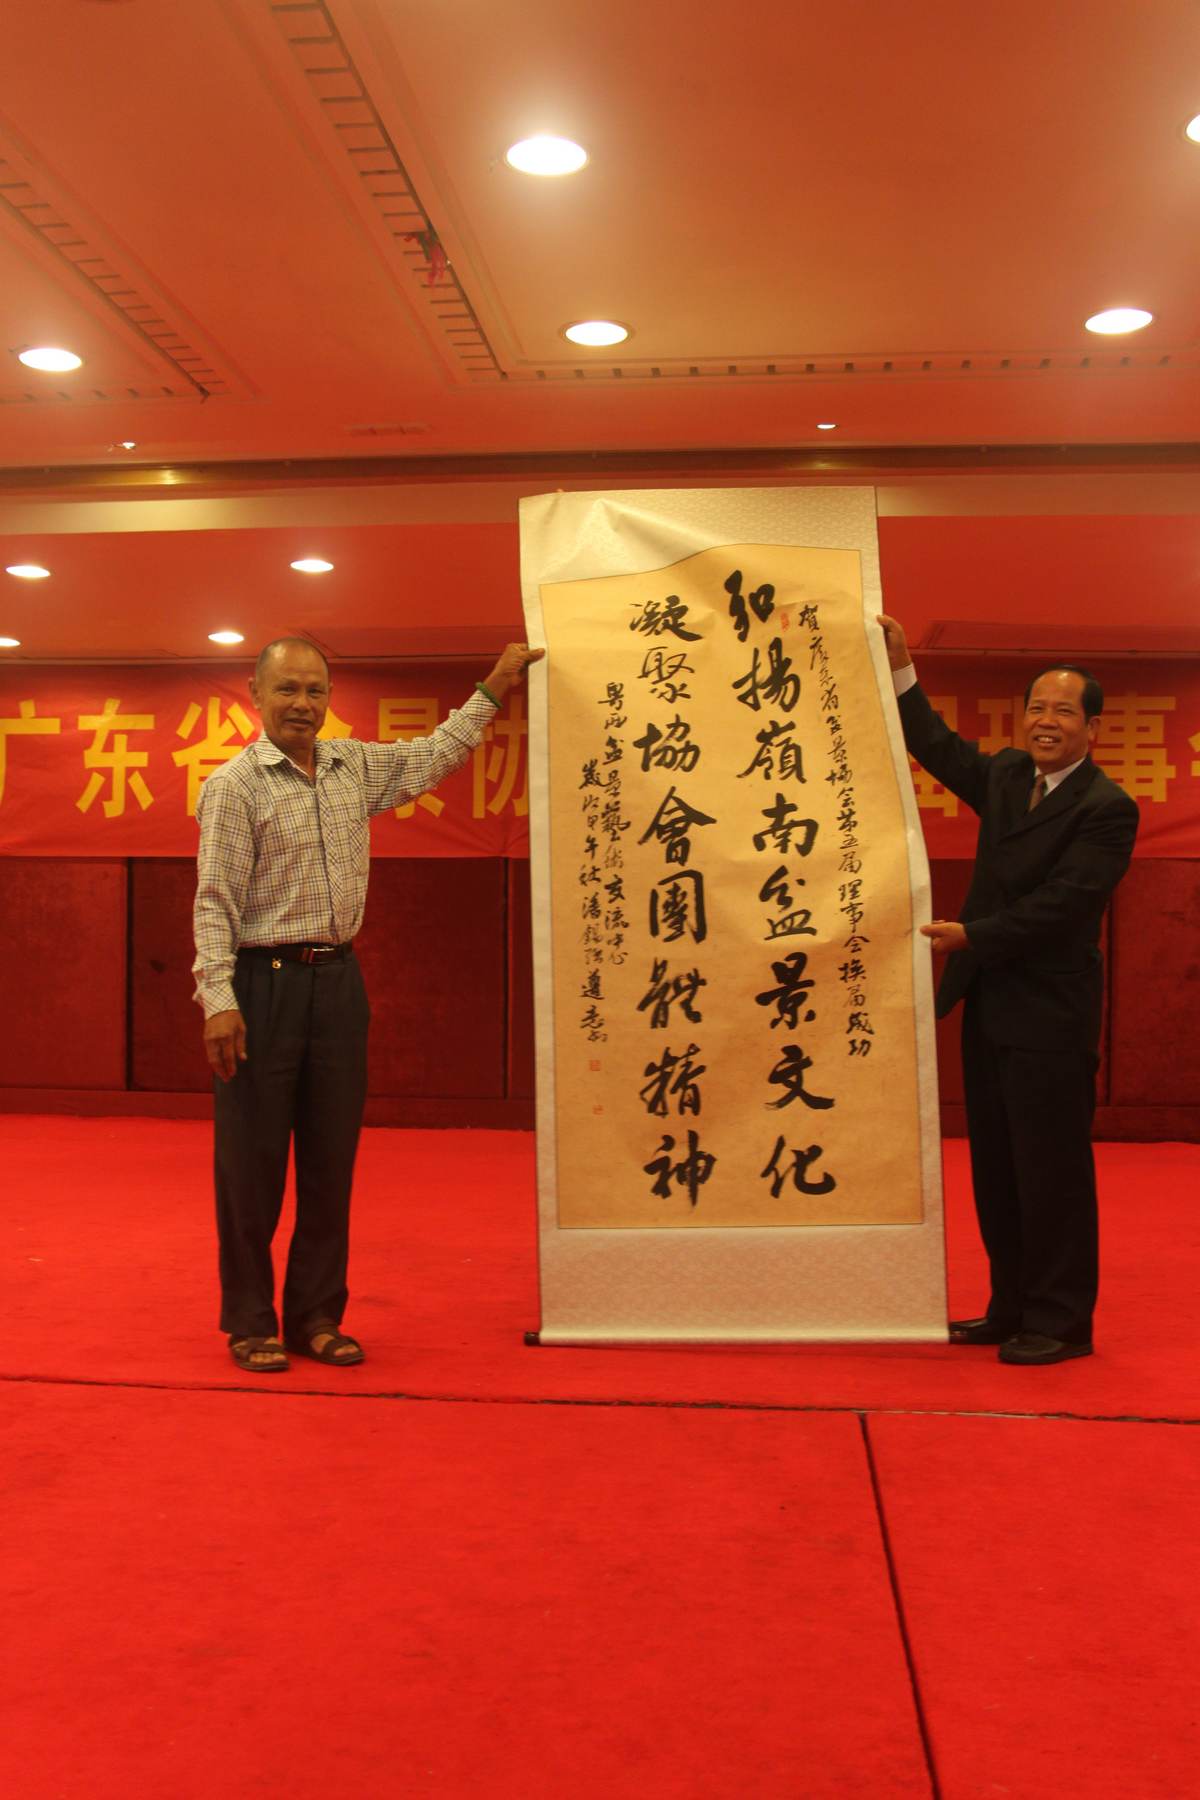 广东省盆景协
届理事会
賀廣东省盆景協会第五届理事会換届成功
弘揚嶺南盆景文化
凝聚協會團體精神
粤西盆景藝術交流中心
歲次甲午秋潘錫强